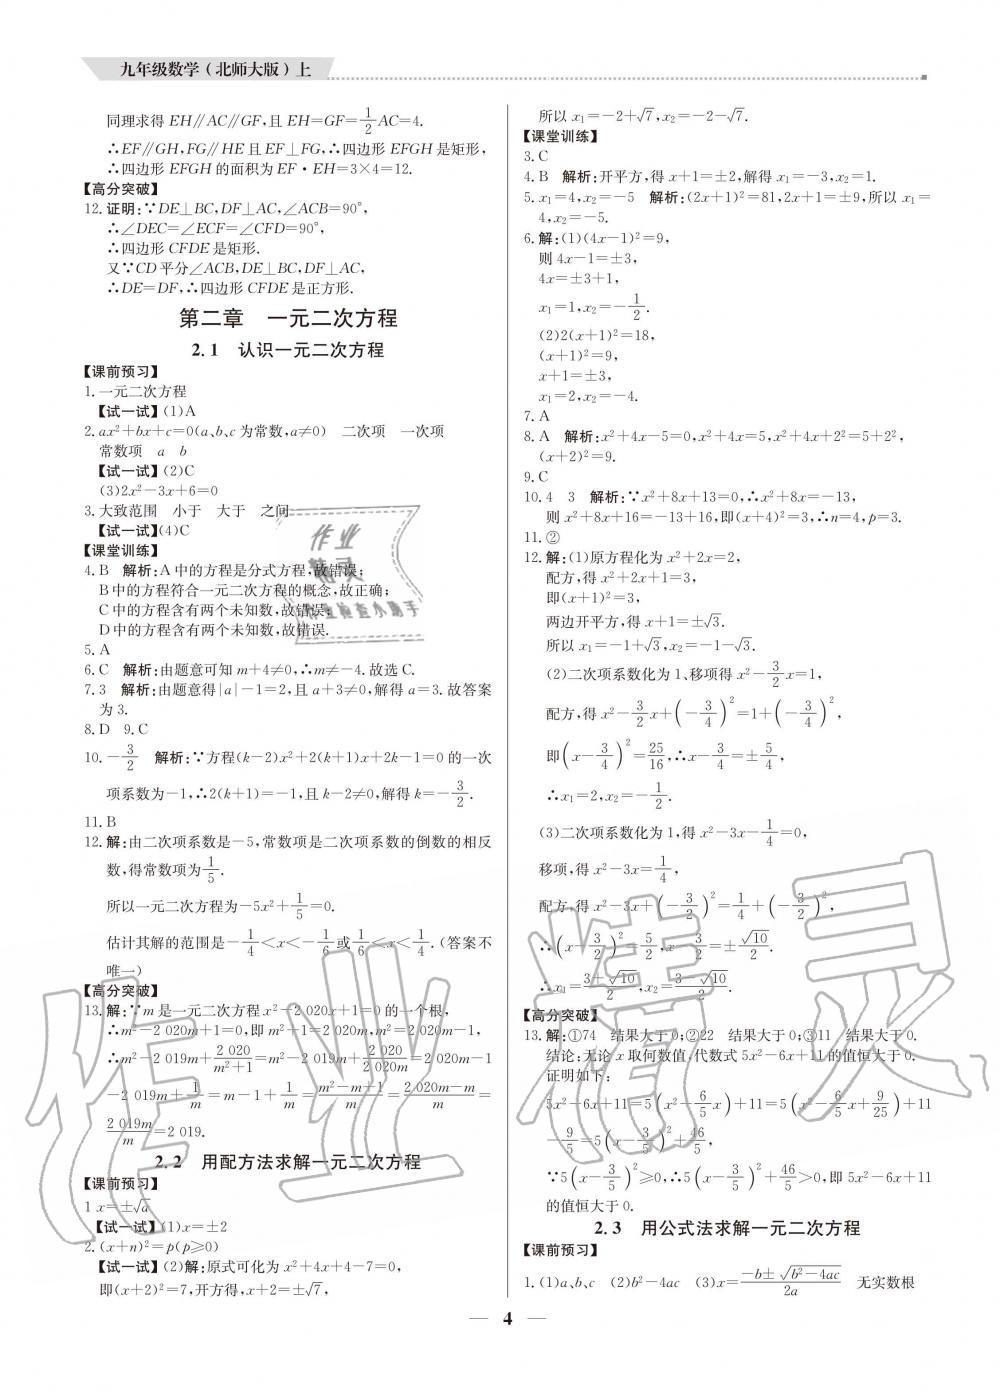 九年级数学(北师大版)上
同理求得 EH∥AC∥GF,且 EH=GF=1/2AC=4.
∴EF∥GH,FG∥HE 且 EF⊥FG,∴四边形 EFGH 是矩形,
∴四边形 EFGH 的面积为 EF·EH=3×4=12.
【高分突破】
12.证明:∵DE⊥BC,DF⊥AC,∠ACB=90°,
∴∠DEC=∠ECF=∠CFD=90°,
∴四边形 CFDE 是矩形.
又∵CD 平分∠ACB,DE⊥BC,DF⊥AC,
∴DE=DF,∴四边形 CFDE 是正方形.
第二章 一元二次方程
2.1 认识一元二次方程
【课前预习】
1.一元二次方程
【试一试】(1)A
2.ax²+bx+c=0(a、b、c 为常数,a≠0) 二次项 一次项
常数项 a b
【试一试】(2)C
(3)2x²-3x+6=0
3.大致范围 小于 大于 之间
【试一试】(4)C
【课堂训练】
4.B 解析:A 中的方程是分式方程,故错误;
B 中的方程符合一元二次方程的概念,故正确;
C 中的方程含有两个未知数,故错误;
D 中的方程含有两个未知数,故错误.
5.A
6.C 解析:由题意可知 m+4≠0,∴m≠-4.故选 C.
7.3 解析:由题意得|a|-1=2,且 a+3≠0,解得 a=3.故答案
为 3.
8.D 9.C
10.-3/2 解析:∵方程(k-2)x²+2(k+1)x+2k-1=0 的一次
项系数为-1,∴2(k+1)=-1,且 k-2≠0,解得 k=-3/2.
11.B
12.解:由二次项系数是-5,常数项是二次项系数的倒数的相反
数,得常数项为1/5.
所以一元二次方程为-5x²+1/5=0.
估计其解的范围是-1/4<x<-1/6或1/6<x<1/4.(答案不
唯一)
【高分突破】
13.解:∵m 是一元二次方程 x²-2 020x+1=0 的一个根,
∴m²-2 020m+1=0,即 m²+1=2 020m,m²=2 020m-1,
∴m²-2 019m+2 020/(m²+1)=m²-2 019m+2 020/(2 020m)=2 020m-1
-2 019m+1/m=m-1+1/m=(m²-m+1)/m=(2 020m-m)/m=
2 019m/m=2 019.
2.2 用配方法求解一元二次方程
【课前预习】
1 x=±√a
【试一试】(1)x=±2
2.(x+n)²=p(p≥0)
【试一试】(2)解:原式可化为 x²+4x+4-7=0,
即(x+2)²=7,开方得,x+2=±√7,
所以 x₁=-2+√7,x₂=-2-√7.
【课堂训练】
3.C
4.B 解析:开平方,得 x+1=±2,解得 x₁=-3,x₂=1.
5.x₁=4,x₂=-5 解析:(2x+1)²=81,2x+1=±9,所以 x₁=
4,x₂=-5.
6.解:(1)(4x-1)²=9,
则 4x-1=±3,
4x=±3+1,
x₁=1,x₂=-1/2.
(2)2(x+1)²=18,
(x+1)²=9,
x+1=±3,
x₁=2,x₂=-4.
7.A
8.A 解析:x²+4x-5=0,x²+4x=5,x²+4x+2²=5+2²,
(x+2)²=9.
9.C
10.4 3 解析:∵x²+8x+13=0,∴x²+8x=-13,
则 x²+8x+16=-13+16,即(x+4)²=3,∴n=4,p=3.
11.②
12.解:(1)原方程化为 x²+2x=2,
配方,得 x²+2x+1=3,
即(x+1)²=3,
两边开平方,得 x+1=±√3.
所以 x₁=-1+√3,x₂=-1-√3.
(2)二次项系数化为 1、移项得 x²-3/2x=1,
配方,得 x²-3/2x+(-3/4)²=1+(-3/4)²,
即(x-3/4)²=25/16,∴x-3/4=±5/4,
∴x₁=2,x₂=-1/2.
(3)二次项系数化为 1,得 x²-3x-1/4=0,
移项,得 x²-3x=1/4,
配方,得 x²-3x+(-3/2)²=1/4+(-3/2)²,
∴(x-3/2)²=5/2,x-3/2=±√10/2.
∴x₁=(3+√10)/2,x₂=(3-√10)/2.
【高分突破】
13.解:①74 结果大于 0;②22 结果大于 0;③11 结果大于 0.
结论:无论 x 取何数值,代数式 5x²-6x+11 的值恒大于 0.
证明如下:
5x²-6x+11=5(x²-6/5x)+11=5(x²-6/5x+9/25)+11
-9/5=5(x-3/5)²+46/5,
∵5(x-3/5)²≥0,∴5(x-3/5)²+46/5>0,即 5x²-6x+11
的值恒大于 0.
2.3 用公式法求解一元二次方程
【课前预习】
1.(1)a、b、c (2)b²-4ac (3)x=(-b±√(b²-4ac))/2a 无实数根
— 4 —
作业
精灵
作业检查小助手
作业精灵